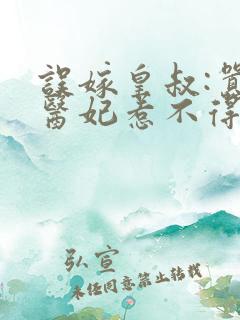 誤嫁皇叔:
醫妃惹不得
弘宣
未经同意禁止转载